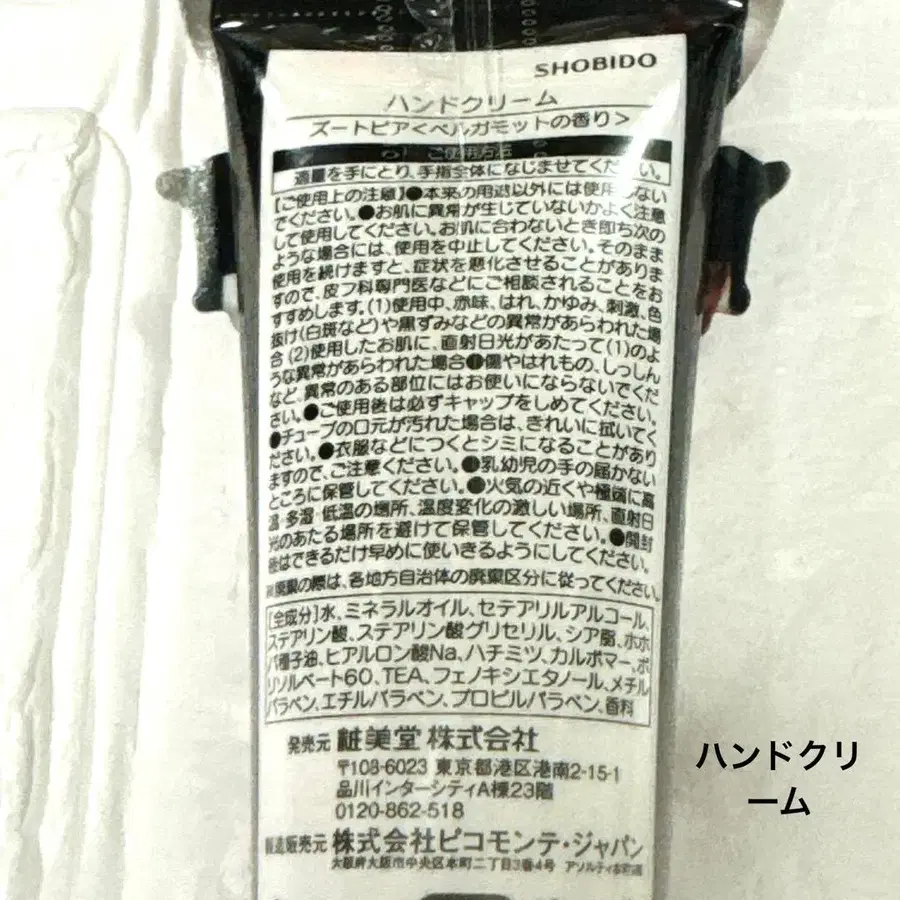 SHOBIDO
ハンドクリーム
ズートピア<ベルガモットの香り>
ご使用方法
適量を手にとり、手指全体になじませてください。
【ご使用上の注意】●本来の用途以外には使用しない
でください。●お肌に異常が生じていないかよく注意
して使用してください。お肌に合わないとき即ち次の
ような場合には、使用を中止してください。そのまま
使用を続けますと、症状を悪化させることがありま
すので、皮フ科専門医などにご相談されることをお
すすめします。(1)使用中、赤味、はれ、かゆみ、刺激、色
抜け(白斑など)や黒ずみなどの異常があらわれた場
合(2)使用したお肌に、直射日光があたって(1)のよ
うな異常があらわれた場合●傷やはれもの、しっしん
など、異常のある部位にはお使いにならないでくだ
さい。●ご使用後は必ずキャップをしめてください。
●チューブの口元が汚れた場合は、きれいに拭いてく
ださい。●衣服などにつくとシミになることがあり
ますので、ご注意ください。●乳幼児の手の届かない
ところに保管してください。●火気の近くや極端に高
温・多湿・低温の場所、温度変化の激しい場所、直射日
光のあたる場所を避けて保管してください。●開封
後はできるだけ早めに使いきるようにしてください。
※廃棄の際は、各地方自治体の廃棄区分に従ってください。
[全成分]水、ミネラルオイル、セテアリルアルコール、
ステアリン酸、ステアリン酸グリセリル、シア脂、ホホ
バ種子油、ヒアルロン酸Na、ハチミツ、カルボマー、ポ
リソルベート60、TEA、フェノキシエタノール、メチル
パラベン、エチルパラベン、プロピルパラベン、香料
発売元 粧美堂 株式会社
〒108-6023 東京都港区港南2-15-1
品川インターシティA棟23階
0120-862-518
製造販売元 株式会社ピコモンテ・ジャパン
大阪府大阪市中央区本町二丁目3番4号 アソルティ本町
ハンドクリ
ーム